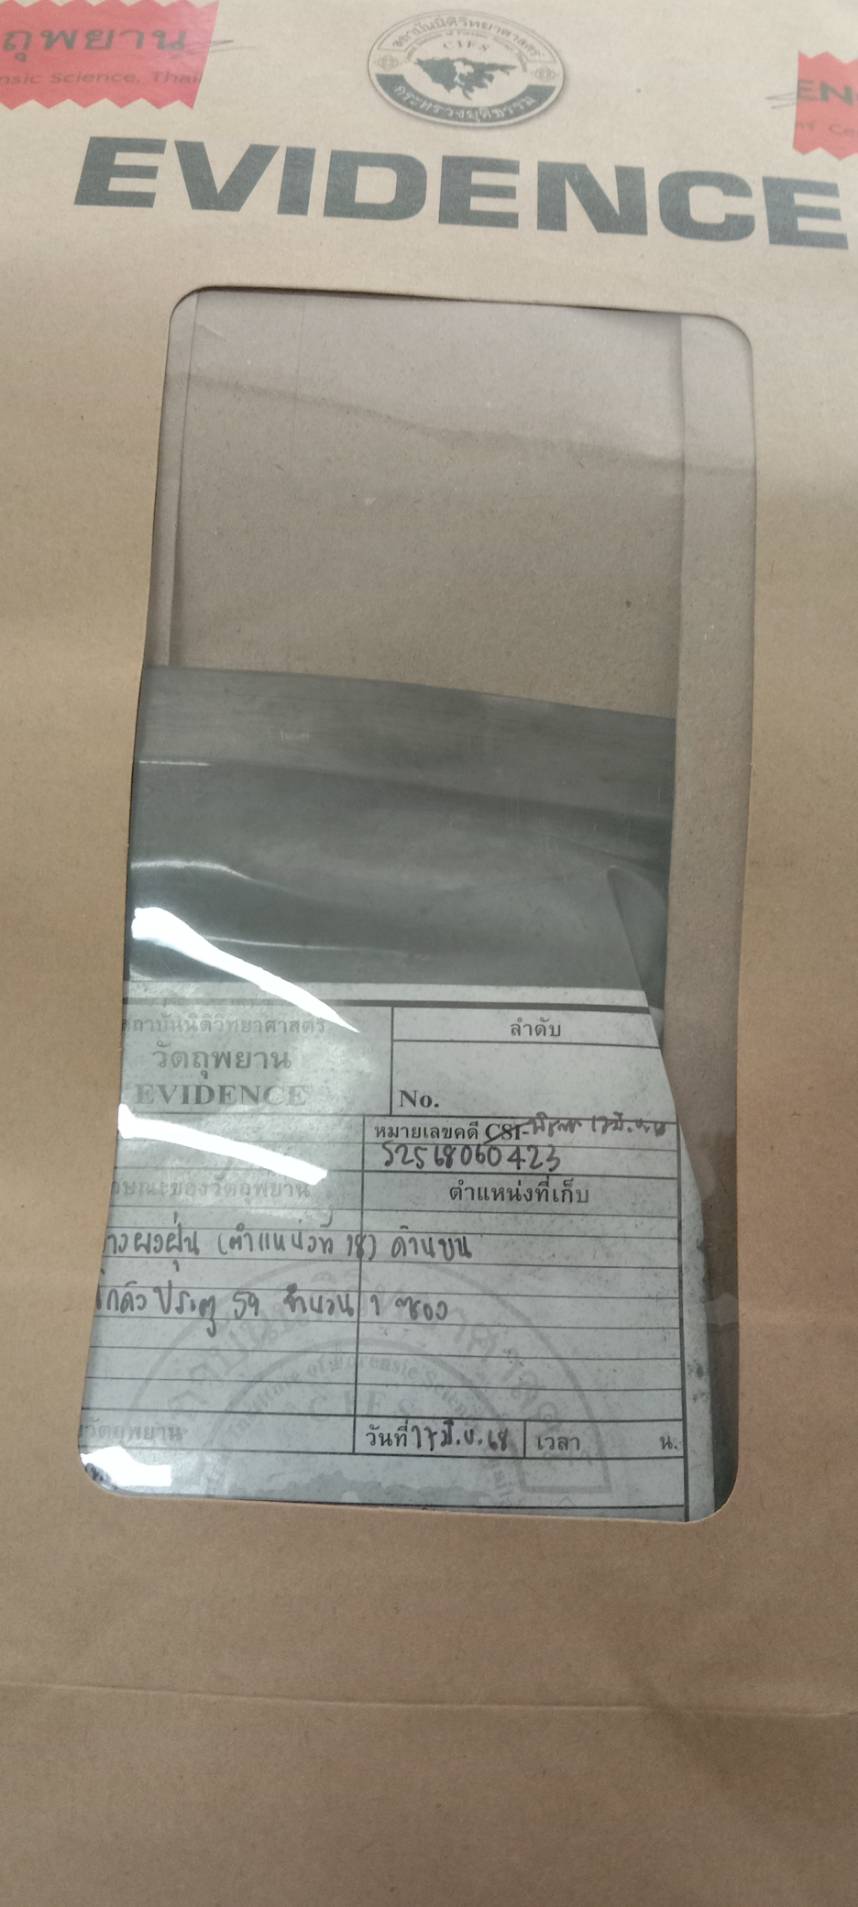 ถุพยาน
nsic Science, Thai
สถาบันนิติวิทยาศาสตร์
CIFS
กระทรวงยุติธรรม
EN
EVIDENCE
สถาบันนิติวิทยาศาสตร์
วัตถุพยาน
EVIDENCE
ลำดับ
No.
หมายเลขคดี CSI-
52568060423
ษณะของวัตถุพยาน
ตำแหน่งที่เก็บ
างผงฝุ่น (ตำแหน่งที่ 18) ด้านบน
ประตู จำนวน 1 ซอง
วัตถุพยาน
วันที่ 17 มิ.ย. 68 เวลา น.